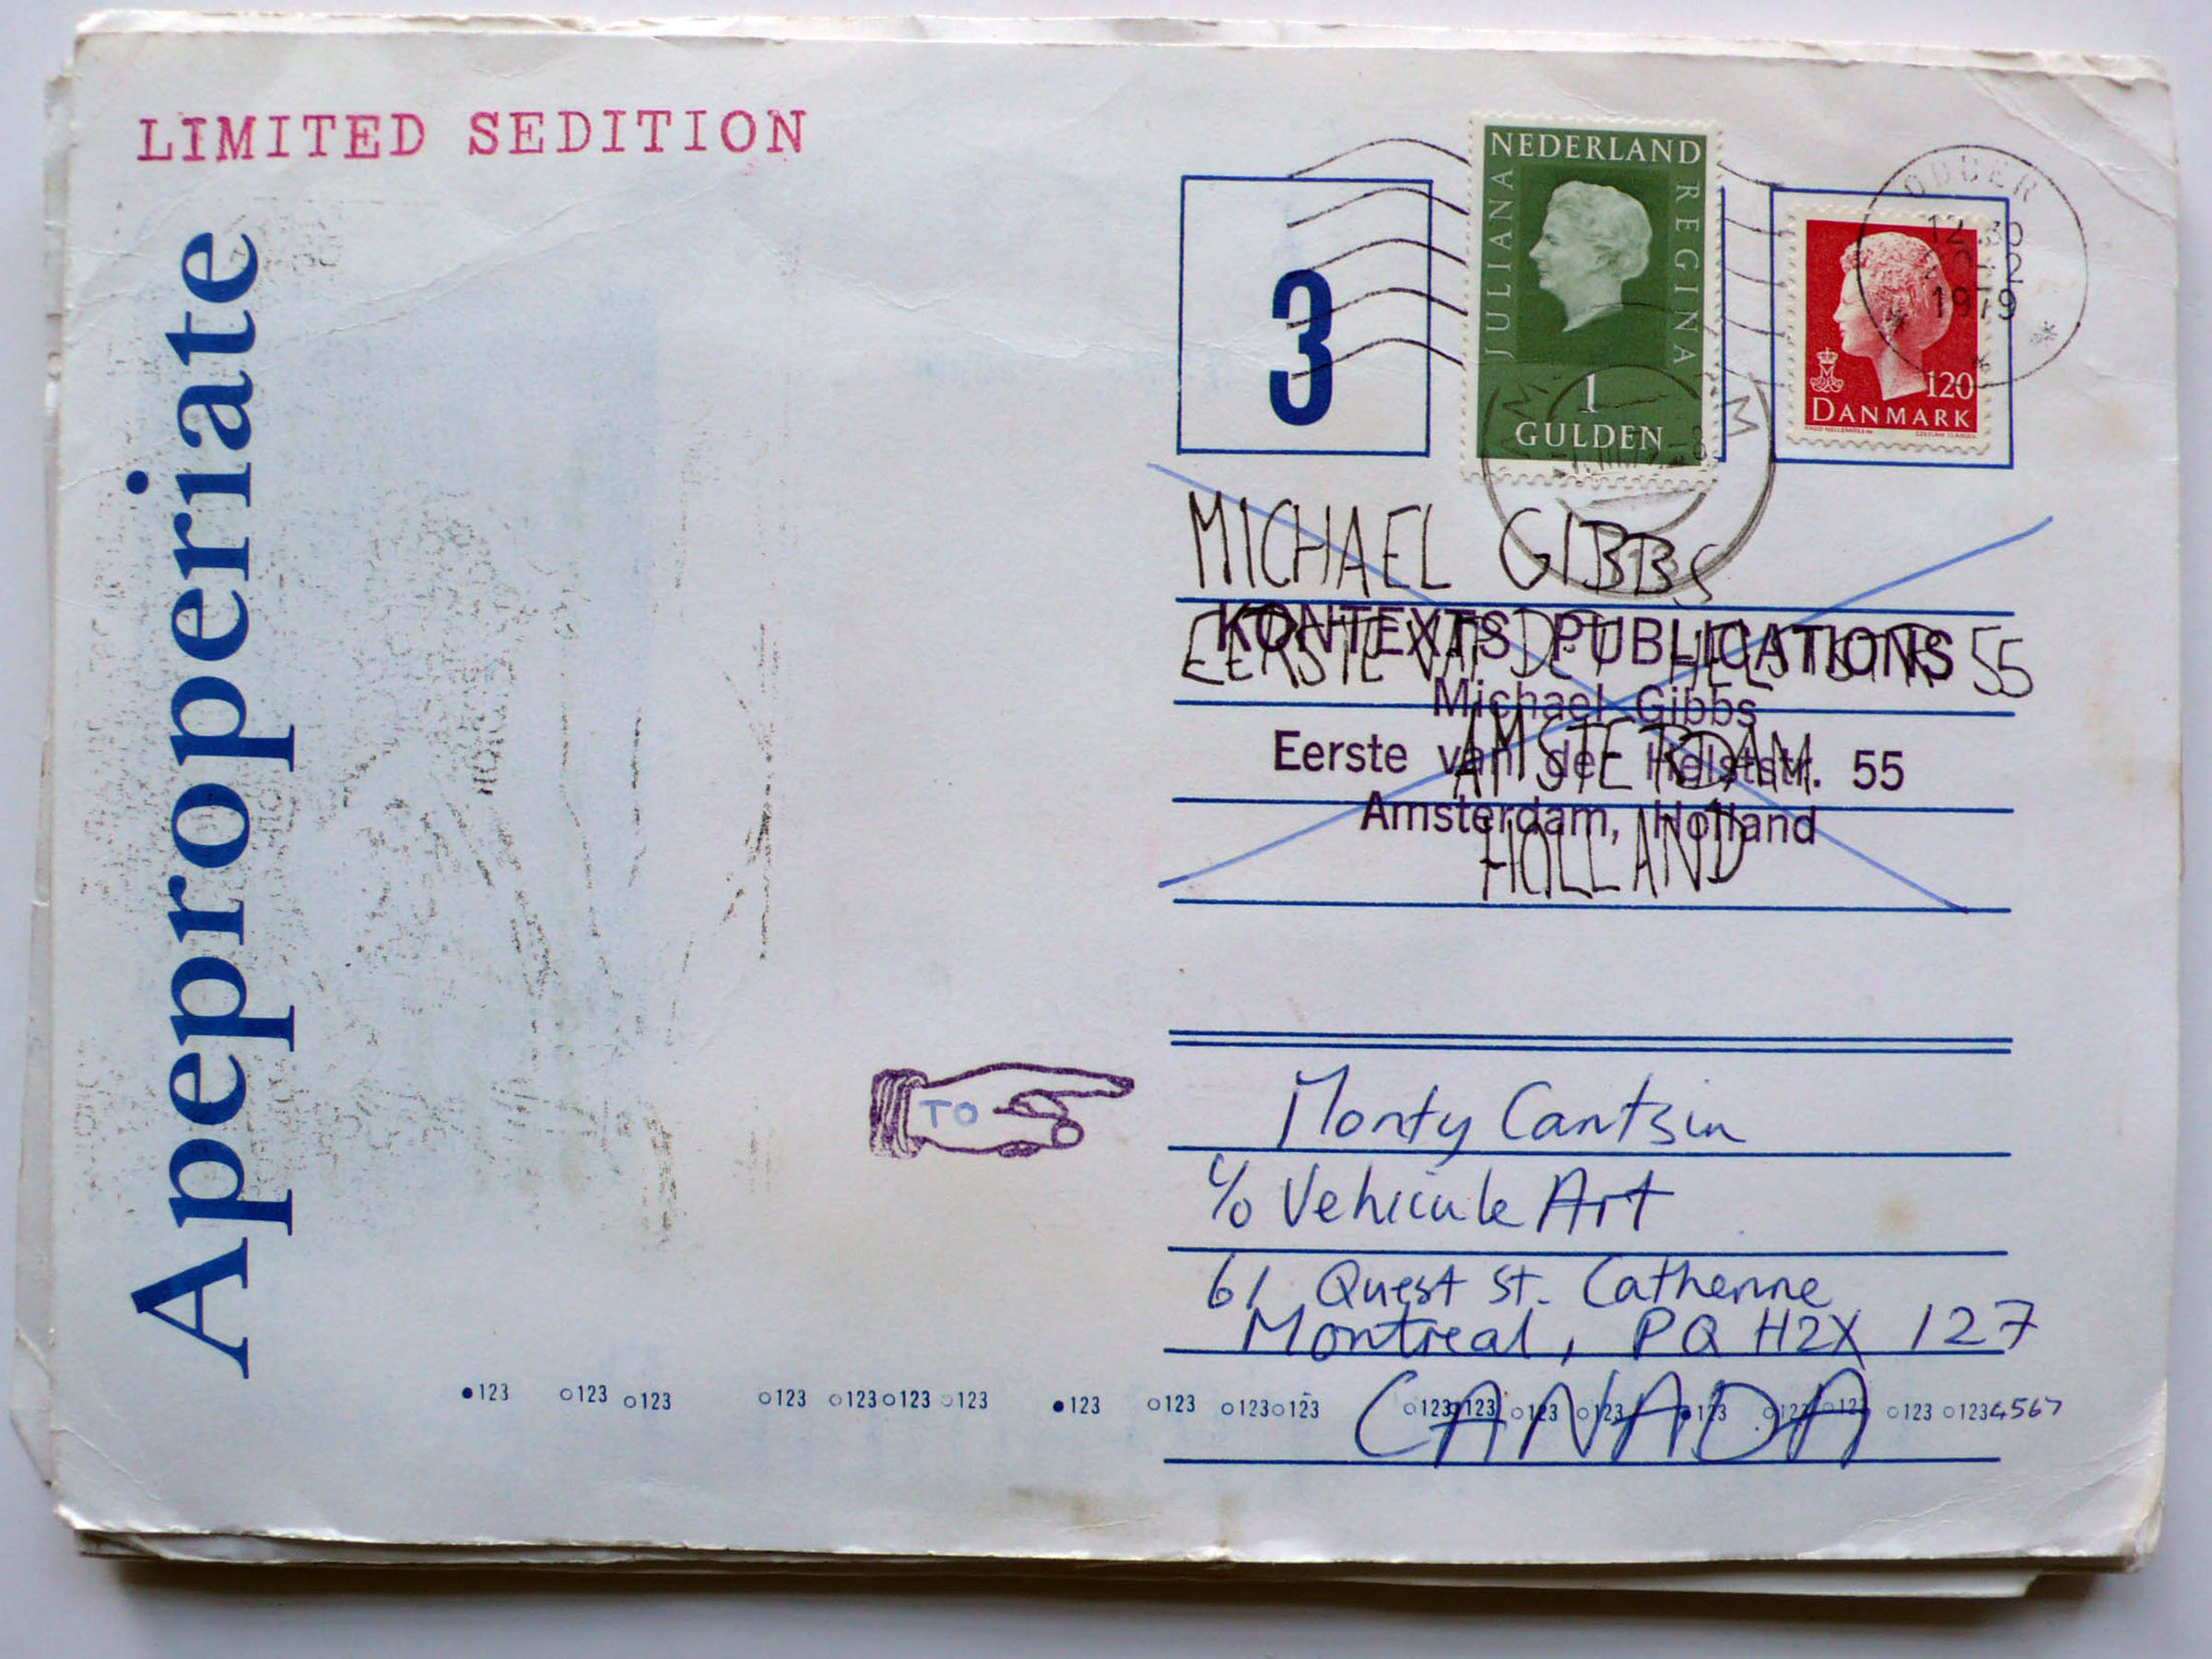 LIMITED SEDITION
Apeproperiate
3
NEDERLAND
JULIANA
REGINA
1
GULDEN
ODDER
12.30
1979
120
DANMARK
MICHAEL GIBBS
EERSTE VAN DER HELSTSTR 55
AMSTERDAM
HOLLAND
KONTEXTS PUBLICATIONS
Michael Gibbs
Eerste van der Helststr. 55
Amsterdam, Holland
TO
Monty Cantsin
c/o Vehicule Art
61 Quest St. Catherine
Montreal, PQ H2X 127
CANADA
●123 ○123 ○123 ○123 ○123○123 ○123 ●123 ○123 ○123○123 ○123○123 ○123 ○123 ●123 ○123 ○123 ○123 ○1234567